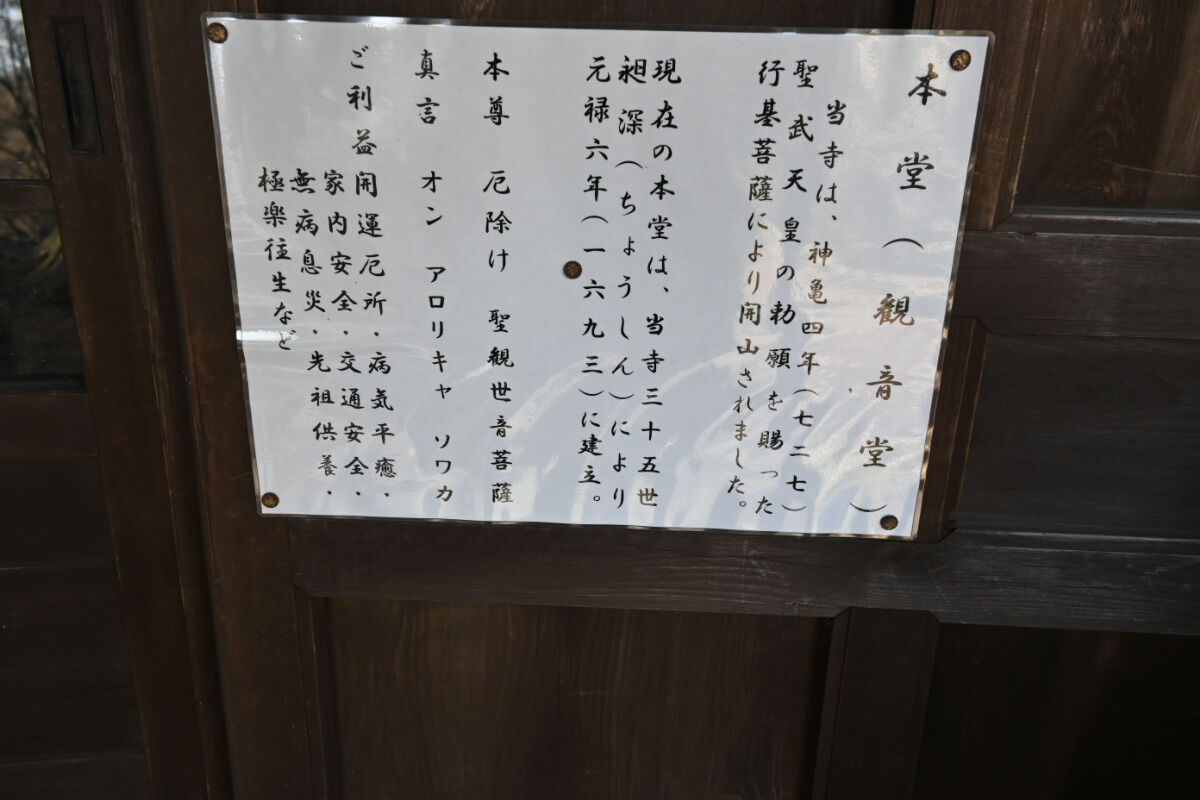 本堂(観音堂)
当寺は、神亀四年(七二七)
聖武天皇の勅願を賜った
行基菩薩により開山されました。
現在の本堂は、当寺三十五世
昶深(ちょうしん)により
元禄六年(一六九三)に建立。
本尊 厄除け 聖観世音菩薩
真言 オン アロリキャ ソワカ
ご利益 開運厄所・病気平癒・
家内安全・交通安全・
無病息災・先祖供養・
極楽往生など